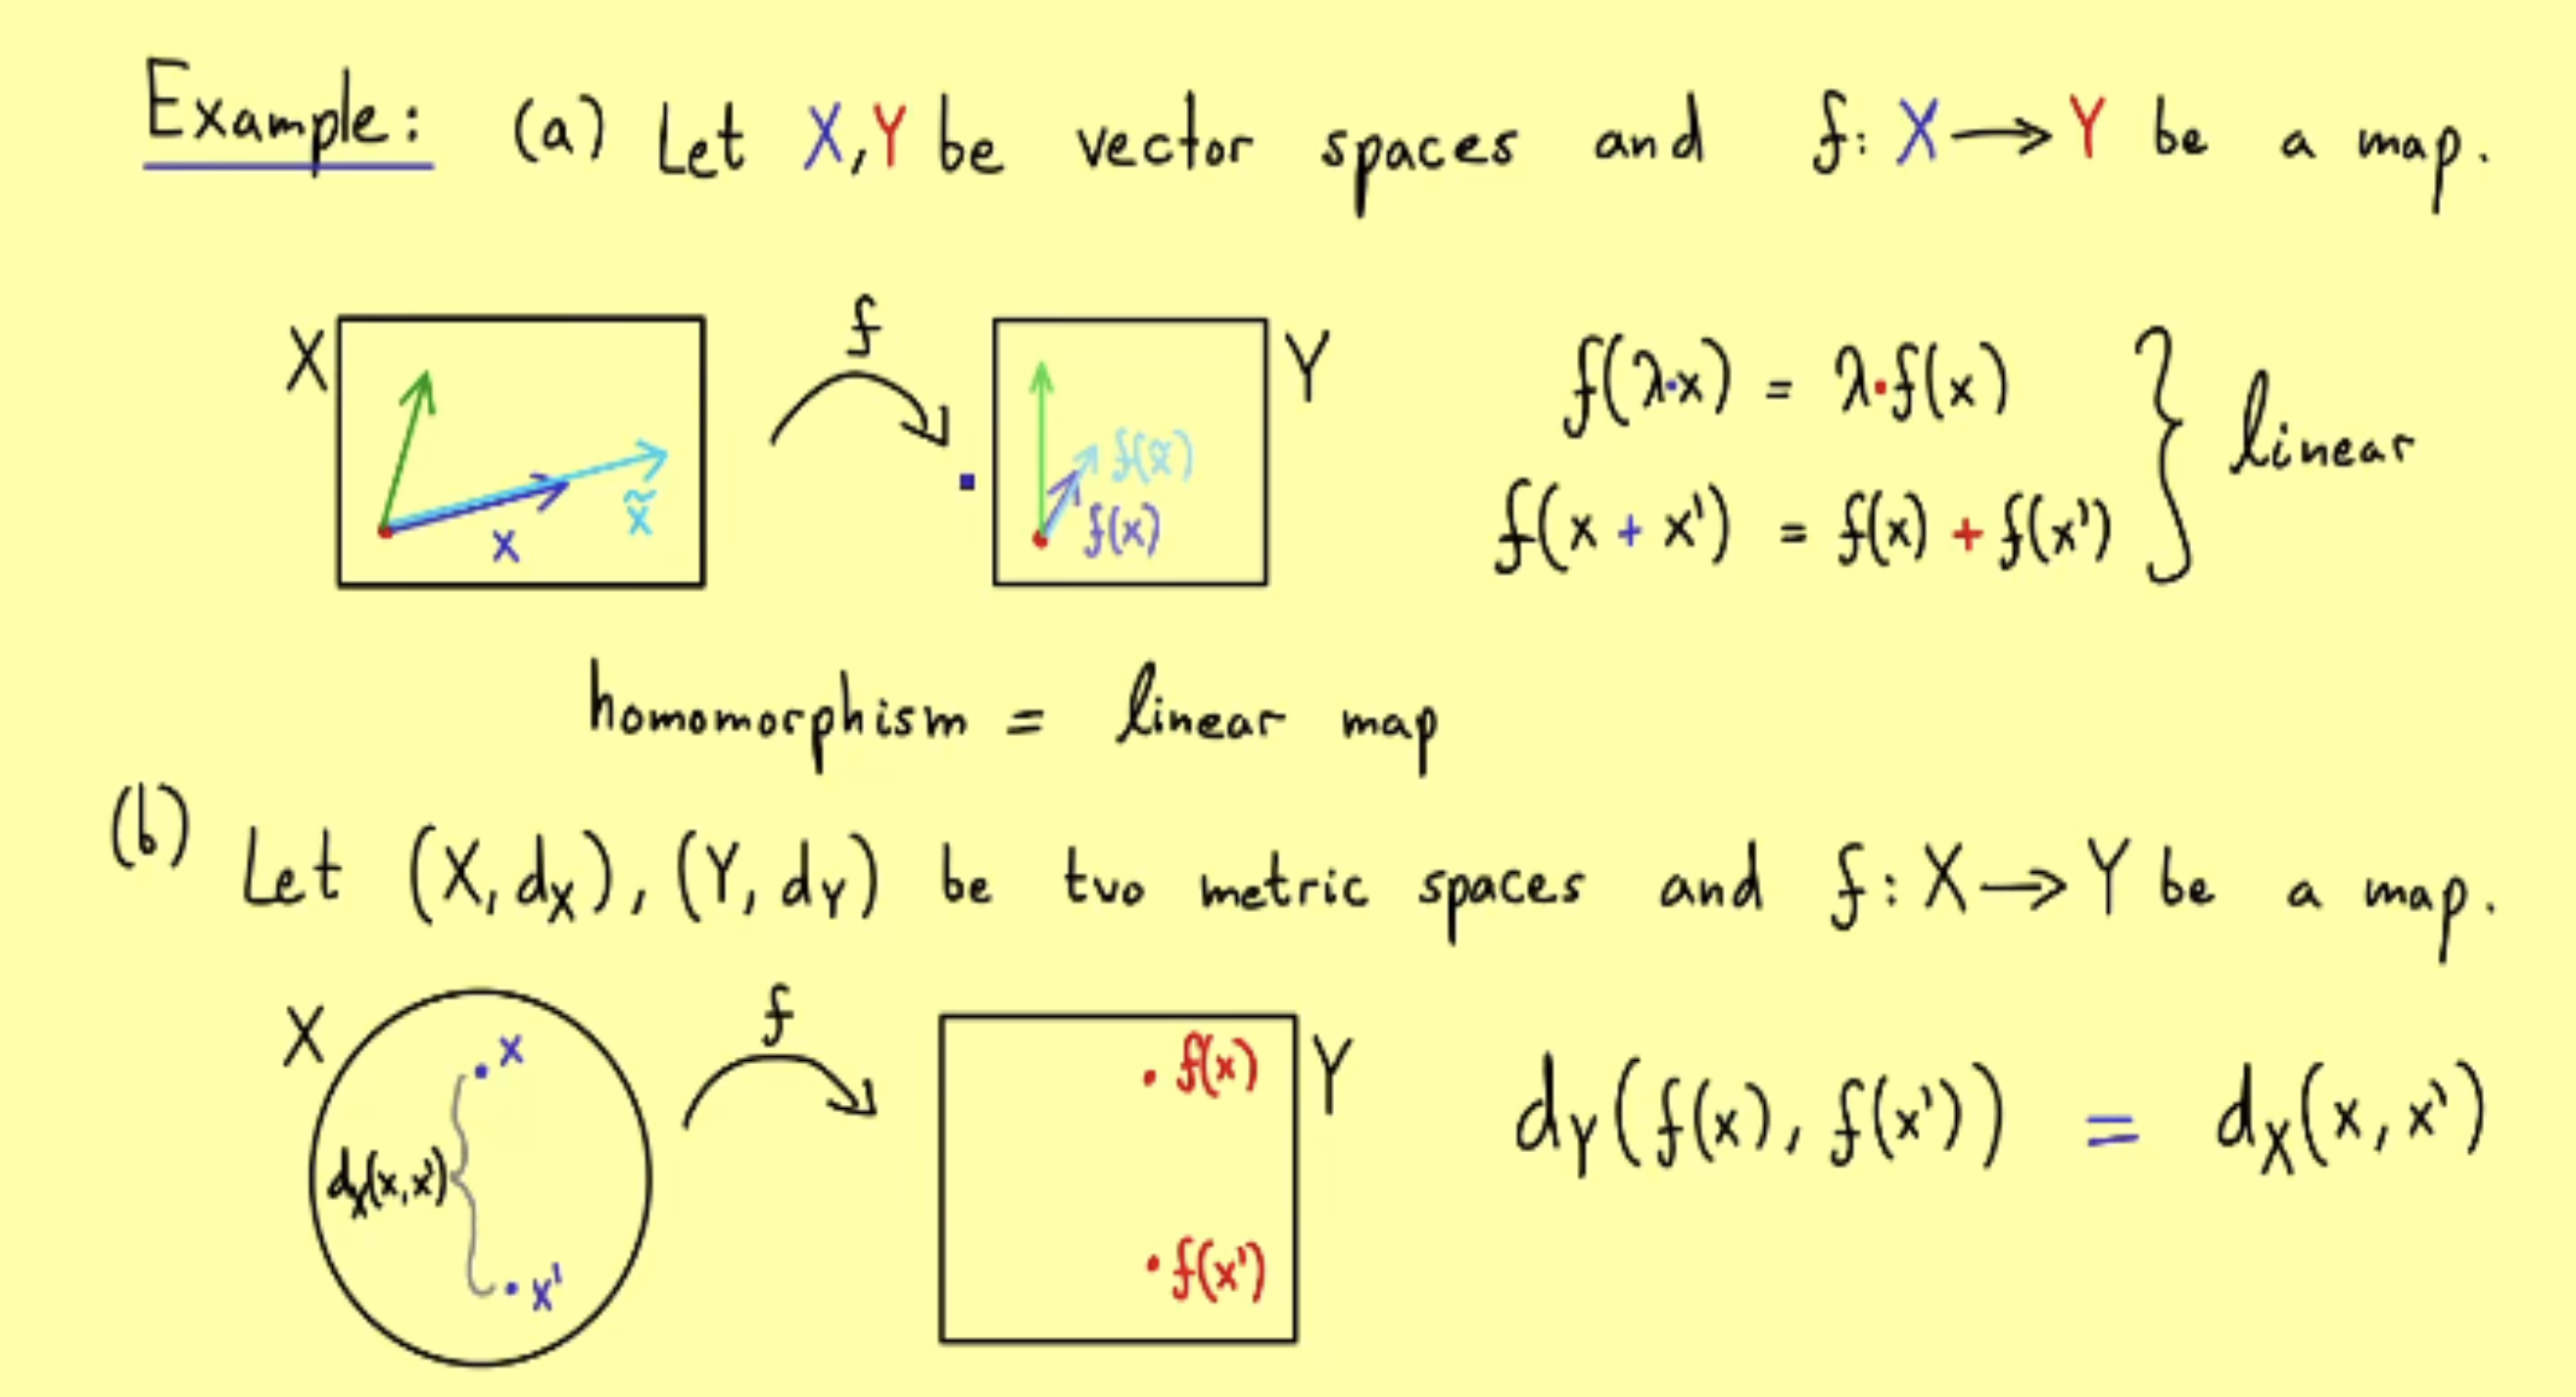 Example: (a) Let X,Y be vector spaces and f: X⟶Y be a map.
X
f
Y
x
x̃
f(x̃)
f(x)
f(λ·x) = λ·f(x)
f(x + x') = f(x) + f(x')
linear
homomorphism = linear map
(b) Let (X, d_X), (Y, d_Y) be two metric spaces and f: X⟶Y be a map.
X
x
d_X(x,x')
x'
f
f(x)
f(x')
Y
d_Y(f(x), f(x')) = d_X(x, x')